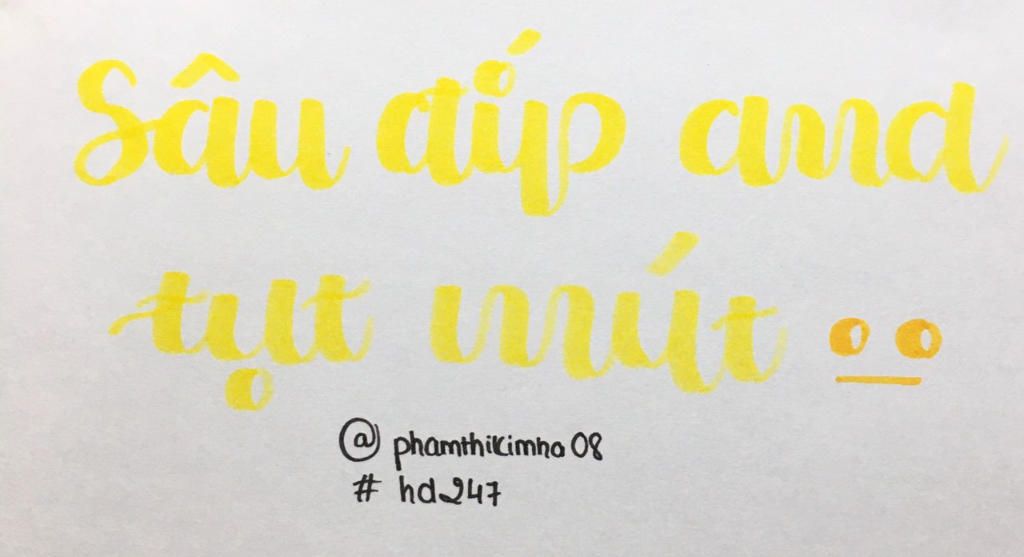 Sâu đíp and
tụt mút
@phamthikimha08
#hd247